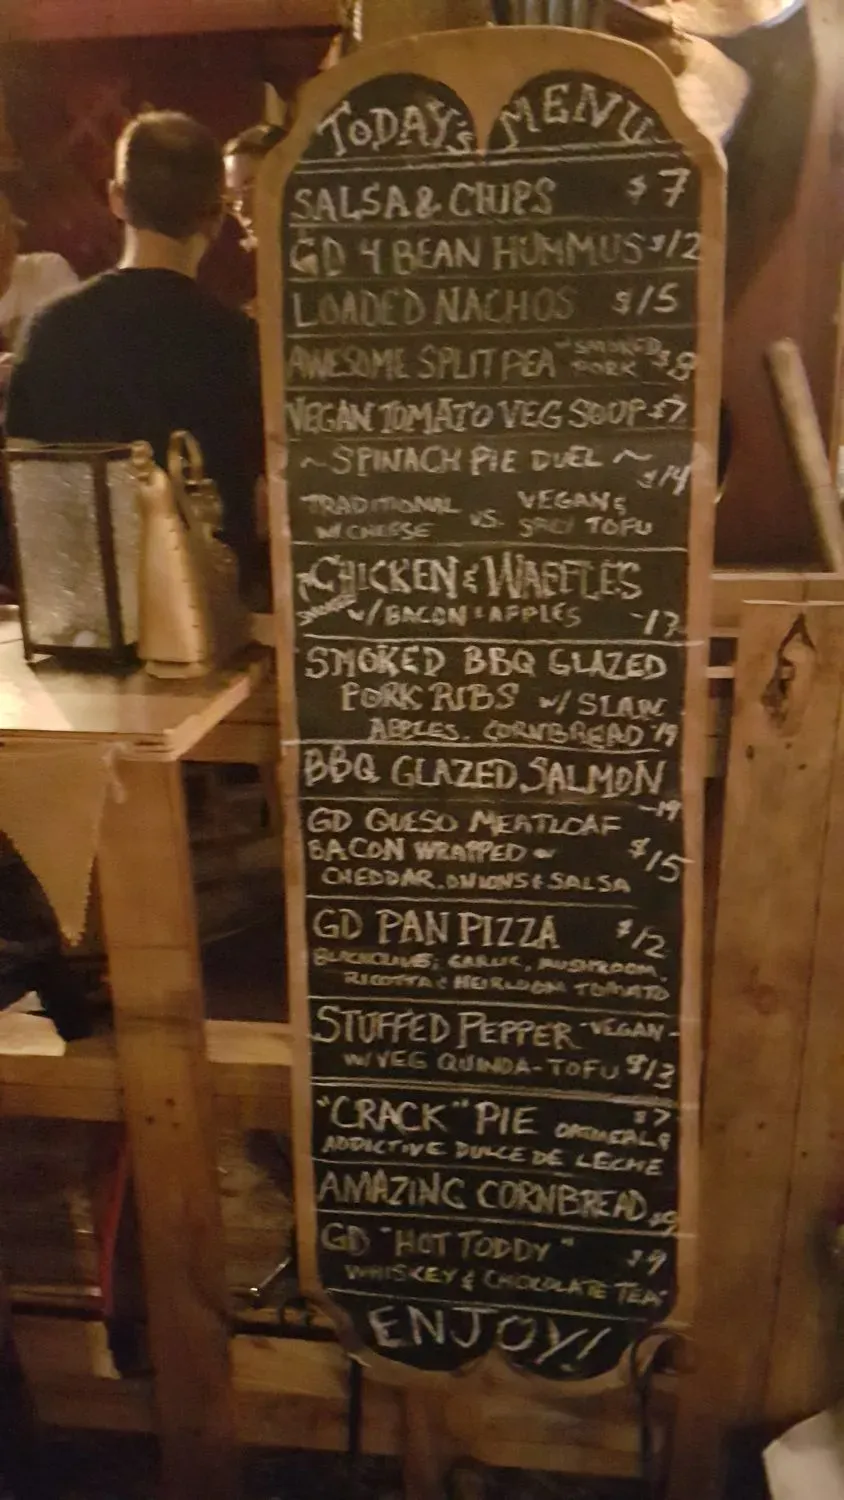 TODAY'S MENU
SALSA & CHIPS $7
GD 4 BEAN HUMMUS $12
LOADED NACHOS $15
AWESOME SPLIT PEA SMOKED PORK $8
VEGAN TOMATO VEG SOUP $7
~SPINACH PIE DUEL~ $14
TRADITIONAL VS. VEGAN &
W/ CHEESE TOFU
CHICKEN & WAFFLES
W/ BACON & APPLES -17
SMOKED BBQ GLAZED
PORK RIBS W/ SLAW
APPLES. CORNBREAD 19
BBQ GLAZED SALMON
-19
GD QUESO MEATLOAF
BACON WRAPPED $15
CHEDDAR, ONIONS & SALSA
GD PAN PIZZA $12
GARLIC, MUSHROOM,
RICOTTA & HEIRLOOM TOMATO
STUFFED PEPPER -VEGAN-
W/ VEG QUINOA-TOFU $13
"CRACK" PIE $7
OATMEAL &
ADDICTIVE DULCE DE LECHE
AMAZING CORNBREAD
GD "HOT TODDY" $9
WHISKEY & CHOCOLATE TEA
ENJOY!